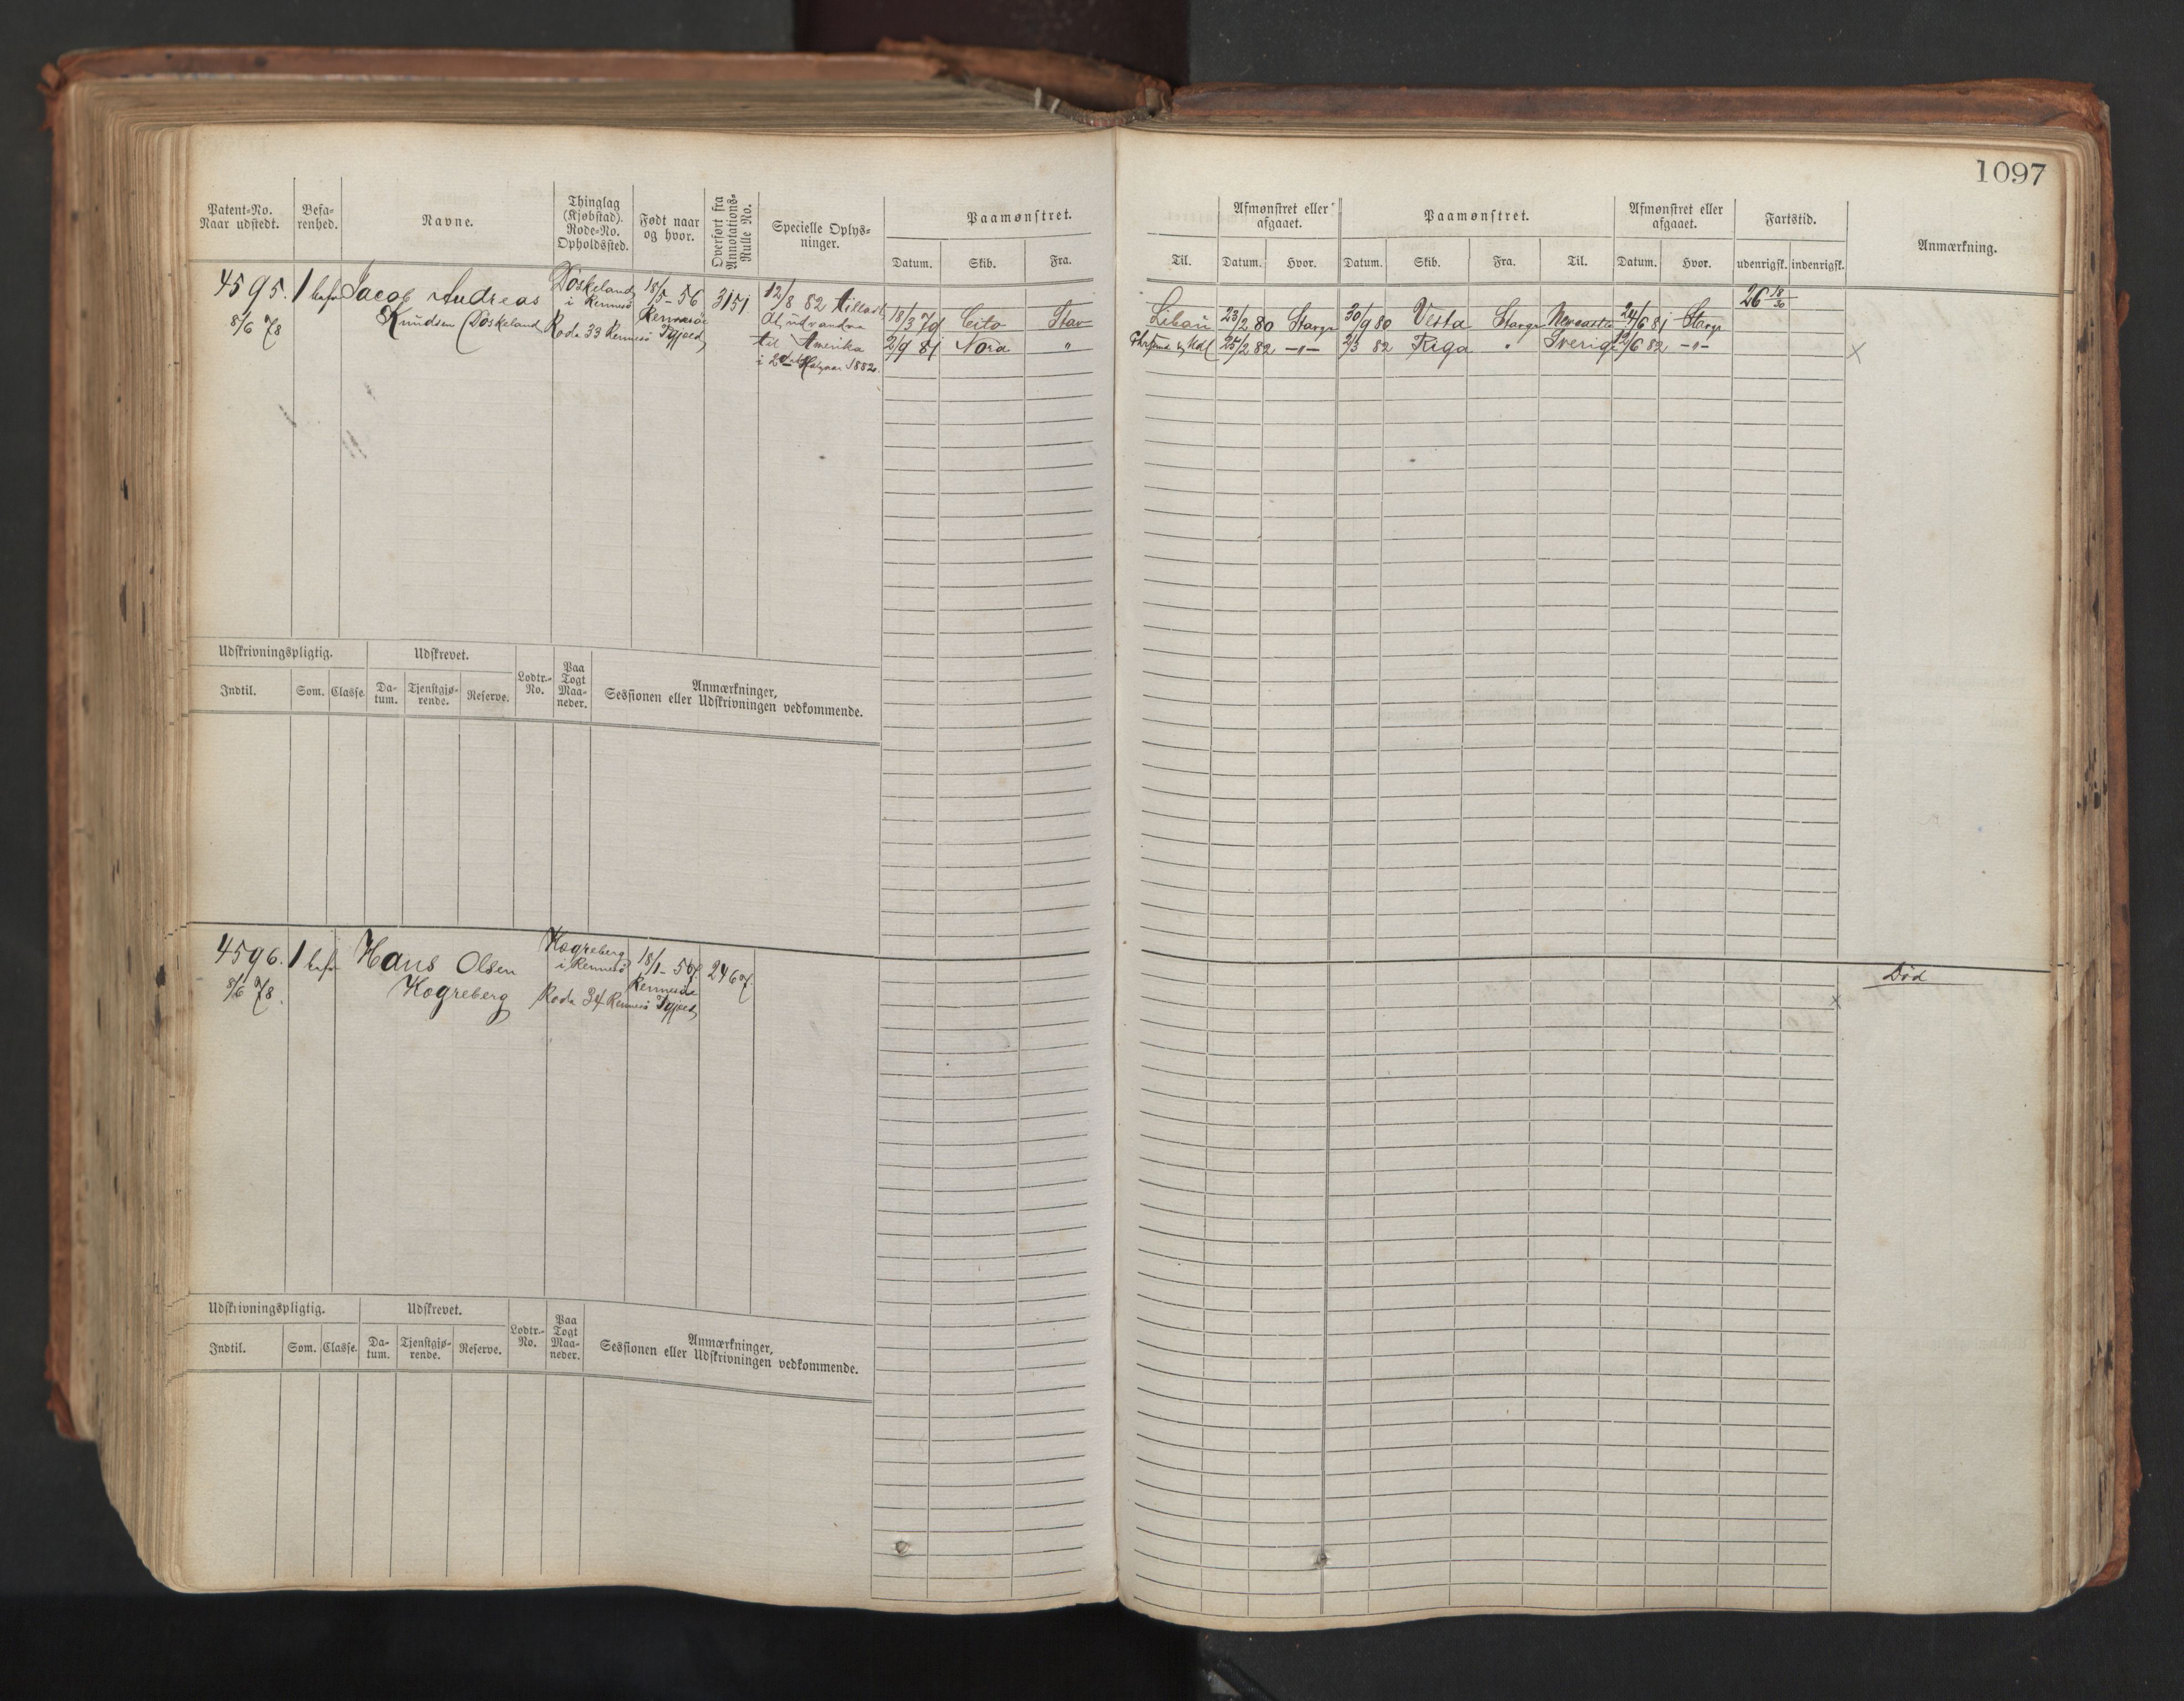 1097
Patent-No. Naar udstedt.
Befa-renhed.
Navne.
Thinglag (Kjøbstad). Rode-No. Opholdssted.
Født naar og hvor.
Overført fra Annotations-Rulle No.
Specielle Oplys-ninger.
Paamønstret.
Datum. Skib. Fra.
Til.
Afmønstret eller afgaaet.
Datum. Hvor.
Paamønstret.
Datum. Skib. Fra. Til.
Afmønstret eller afgaaet.
Datum. Hvor.
Fartstid.
udenrigsk. indenrigsk.
Anmærkning.
4595. 1 Jacob Andreas
Knudsen Døskeland
8/6 78
Døskeland
i Rennesö
Rode 33 Rennesö Tgjæld
18/5-56
Rennesöe
3151
12/8 82 tilladt
at udvandre
til Amerika
i 2det Halvaar 1882.
18/3 79 Cito Stav
2/9 81 Nora "
Libau 23/2 80 Stavgr 30/9 80 Vesta Stavgr Newcastle 24/6 81 Stavgr
26 18/30
25/2 82 -"- 2/3 82 Riga " Sverig 2/6 82 -"-
x
Udskrivningspligtig.
Udskrevet.
Indtil. Som. Classe.
Da-tum. Tjenstgjø-rende. Reserve.
Lodtr.-No.
Paa Togt Maa-neder.
Anmærkninger,
Sessionen eller Udskrivningen vedkommende.
4596. 1 Hans Olsen
Kogreberg
8/6 78.
Kogreberg
i Rennesö
Rode 34 Rennesö Tgjæld
18/1-57.
Rennesöe
2467.
Död
x
Udskrivningspligtig.
Udskrevet.
Indtil. Som. Classe.
Da-tum. Tjenstgjø-rende. Reserve.
Lodtr.-No.
Paa Togt Maa-neder.
Anmærkninger,
Sessionen eller Udskrivningen vedkommende.